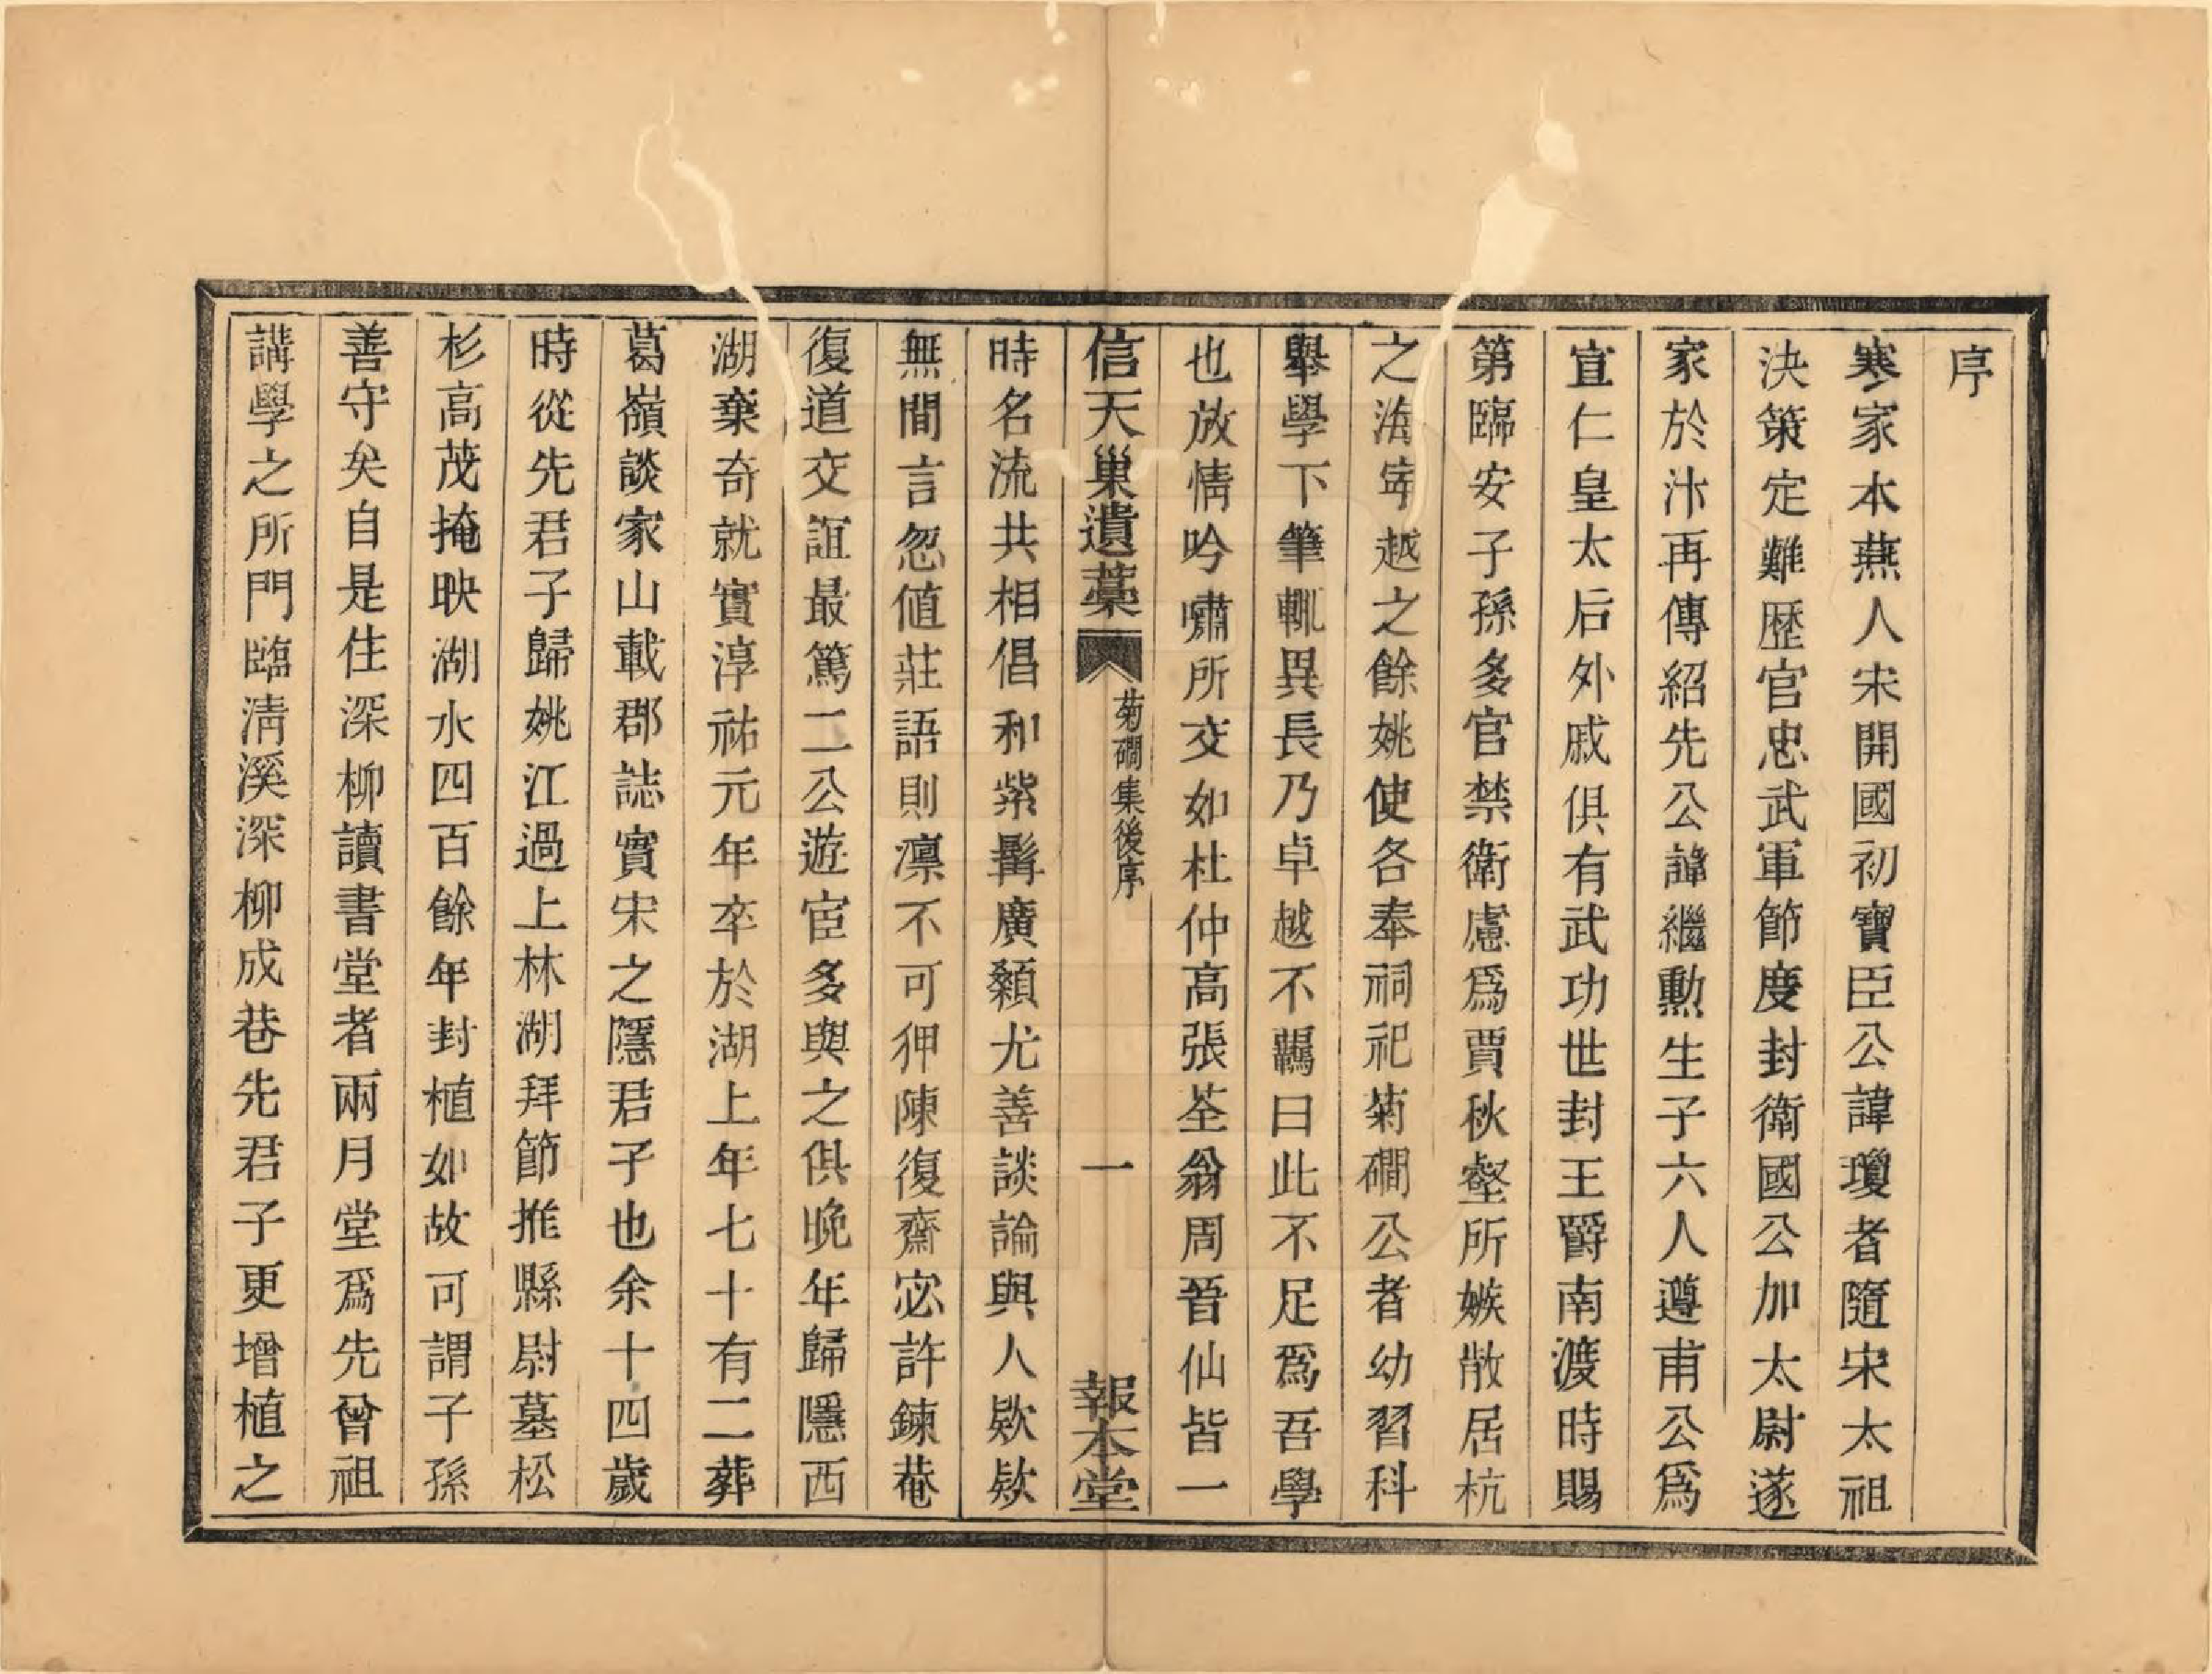 序
寒家本燕人宋開國初寶臣公諱瓊者隨宋太祖
決策定難歴官忠武軍節度封衛國公加太尉遂
家於汴再傳紹先公諱繼勲生子六人遵甫公爲
宣仁皇太后外戚俱有武功世封王爵南渡時賜
第臨安子孫多官禁衛慮爲賈秋壑所嫉散居杭
之海寧越之餘姚使各奉祠祀菊磵公者幼習科
舉學下筆輒異長乃卓越不羈曰此不足爲吾學
也放情吟嘯所交如杜仲高張荃翁周晉仙皆一
信天巢遺藁
菊磵集後序
一
報本堂
時名流共相倡和紫髯廣顙尤善談論與人欵欵
無間言忽値莊語則凛不可狎陳復齋宓許鍊菴
復道交誼最篤二公遊宦多與之俱晚年歸隱西
湖棄奇就實淳祐元年卒於湖上年七十有二葬
葛嶺談家山載郡誌實宋之隱君子也余十四歲
時從先君子歸姚江過上林湖拜節推縣尉墓松
杉高茂掩映湖水四百餘年封植如故可謂子孫
善守矣自是住深柳讀書堂者兩月堂爲先曾祖
講學之所門臨淸溪深柳成巷先君子更增植之